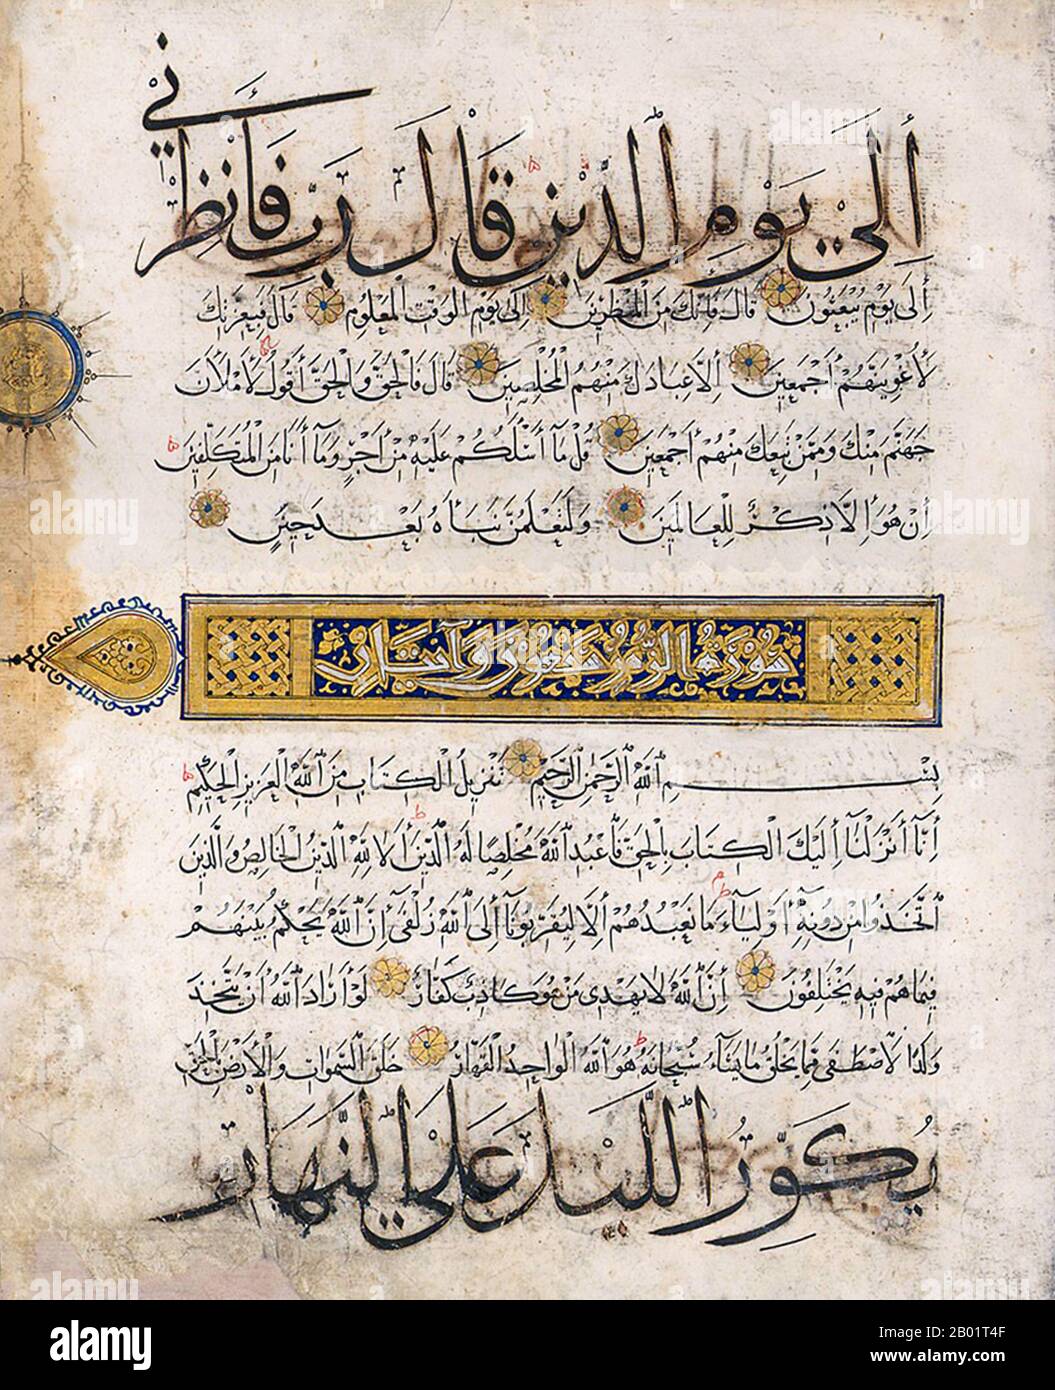 إِلَىٰ يَوْمِ الدِّينِ قَالَ رَبِّ فَأَنْظِرْنِي
إِلَى يَوْمِ يُبْعَثُونَ قَالَ فَإِنَّكَ مِنَ الْمُنْظَرِينَ إِلَى يَوْمِ الْوَقْتِ الْمَعْلُومِ قَالَ فَبِعِزَّتِكَ
لَأُغْوِيَنَّهُمْ أَجْمَعِينَ إِلَّا عِبَادَكَ مِنْهُمُ الْمُخْلَصِينَ قَالَ فَالْحَقُّ وَالْحَقَّ أَقُولُ لَأَمْلَأَنَّ
جَهَنَّمَ مِنْكَ وَمِمَّنْ تَبِعَكَ مِنْهُمْ أَجْمَعِينَ قُلْ مَا أَسْأَلُكُمْ عَلَيْهِ مِنْ أَجْرٍ وَمَا أَنَا مِنَ الْمُتَكَلِّفِينَ
إِنْ هُوَ إِلَّا ذِكْرٌ لِلْعَالَمِينَ وَلَتَعْلَمُنَّ نَبَأَهُ بَعْدَ حِينٍ
سورة الزمر سبعون وآيتان
بِسْمِ اللَّهِ الرَّحْمَنِ الرَّحِيمِ تَنْزِيلُ الْكِتَابِ مِنَ اللَّهِ الْعَزِيزِ الْحَكِيمِ
إِنَّا أَنْزَلْنَا إِلَيْكَ الْكِتَابَ بِالْحَقِّ فَاعْبُدِ اللَّهَ مُخْلِصًا لَهُ الدِّينَ أَلَا لِلَّهِ الدِّينُ الْخَالِصُ وَالَّذِينَ
اتَّخَذُوا مِنْ دُونِهِ أَوْلِيَاءَ مَا نَعْبُدُهُمْ إِلَّا لِيُقَرِّبُونَا إِلَى اللَّهِ زُلْفَى إِنَّ اللَّهَ يَحْكُمُ بَيْنَهُمْ
فِيمَا هُمْ فِيهِ يَخْتَلِفُونَ إِنَّ اللَّهَ لَا يَهْدِي مَنْ هُوَ كَاذِبٌ كَفَّارٌ لَوْ أَرَادَ اللَّهُ أَنْ يَتَّخِذَ
وَلَدًا لَاصْطَفَى مِمَّا يَخْلُقُ مَا يَشَاءُ سُبْحَانَهُ هُوَ اللَّهُ الْوَاحِدُ الْقَهَّارُ خَلَقَ السَّمَوَاتِ وَالْأَرْضَ بِالْحَقِّ
يُكَوِّرُ اللَّيْلَ عَلَى النَّهَارِ
alamy
Image ID: 2B01T4F
www.alamy.com